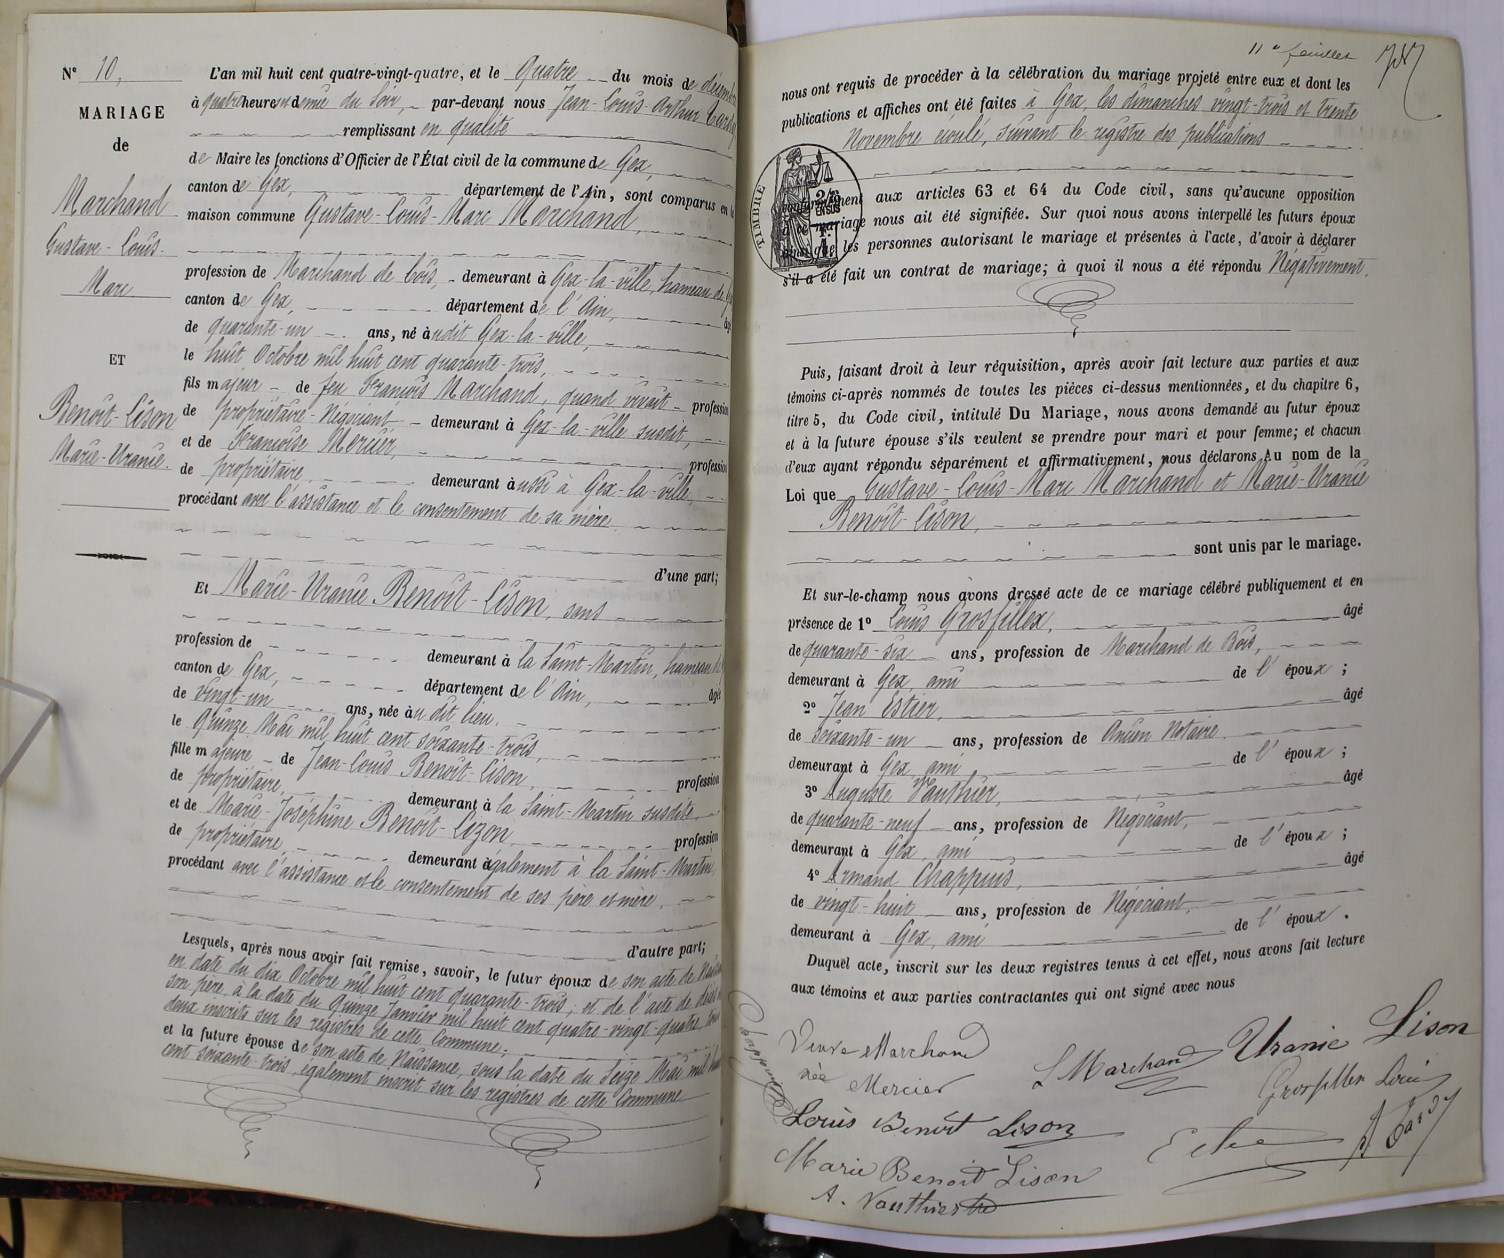 N° 10.
MARIAGE
de
Marchand
Gustave-Louis-
Marc
ET
Benoît-Lison
Marie-Uranie.
L'an mil huit cent quatre-vingt-quatre, et le Quatre du mois de décembre
à quatre heures et demie du soir, par-devant nous Jean-Louis-Arthur
remplissant en qualité
de Maire les fonctions d'Officier de l'État civil de la commune de Gex,
canton de Gex, département de l'Ain, sont comparus en la
maison commune Gustave-Louis-Marc Marchand,
profession de Marchand de bois, demeurant à Gex-la-ville, hameau de
canton de Gex, département de l'Ain, âgé
de quarante-un ans, né audit Gex-la-ville,
le huit Octobre mil huit cent quarante-trois,
fils majeur de feu François Marchand, quand vivait profession
de propriétaire-Négociant demeurant à Gex-la-ville susdit,
et de Françoise Mercier, profession
de propriétaire demeurant aussi à Gex-la-ville,
procédant avec l'assistance et le consentement de sa mère
d'une part;
Et Marie-Uranie Benoît-Lison, sans
profession de demeurant à la Saint-Martin, hameau de
canton de Gex, département de l'Ain, âgée
de vingt-un ans, née audit lieu,
le Quinze Mai mil huit cent soixante-trois,
fille majeure de Jean-Louis Benoît-Lison, profession
de propriétaire, demeurant à la Saint-Martin susdite
et de Marie-Joséphine Benoît-Lizon, profession
de propriétaire demeurant également à la Saint-Martin
procédant avec l'assistance et le consentement de ses père et mère.
d'autre part;
Lesquels, après nous avoir fait remise, savoir, le futur époux de son acte de Naissance
en date du dix Octobre mil huit cent quarante-trois; et de l'acte de décès de
son père, à la date du Quinze Janvier mil huit cent quatre-vingt-quatre, tous
deux inscrits sur les registres de cette Commune;
et la future épouse de son acte de Naissance, sous la date du Seize Mai mil huit
cent soixante-trois, également inscrit sur les registres de cette Commune
11e feuillet
nous ont requis de procéder à la célébration du mariage projeté entre eux et dont les
publications et affiches ont été faites à Gex, les dimanches vingt-trois et trente
Novembre écoulé, suivant le registre des publications
TIMBRE
conformément aux articles 63 et 64 du Code civil, sans qu'aucune opposition
à ce mariage nous ait été signifiée. Sur quoi nous avons interpellé les futurs époux
ainsi que les personnes autorisant le mariage et présentes à l'acte, d'avoir à déclarer
s'il a été fait un contrat de mariage; à quoi il nous a été répondu Négativement.
Puis, faisant droit à leur réquisition, après avoir fait lecture aux parties et aux
témoins ci-après nommés de toutes les pièces ci-dessus mentionnées, et du chapitre 6,
titre 5, du Code civil, intitulé Du Mariage, nous avons demandé au futur époux
et à la future épouse s'ils veulent se prendre pour mari et pour femme; et chacun
d'eux ayant répondu séparément et affirmativement, nous déclarons Au nom de la
Loi que Gustave-Louis-Marc Marchand et Marie-Uranie
Benoît-Lison,
sont unis par le mariage.
Et sur-le-champ nous avons dressé acte de ce mariage célébré publiquement et en
présence de 1° Louis Grosfillex, âgé
de quarante-six ans, profession de Marchand de Bois,
demeurant à Gex, ami de l'époux;
2° Jean Estier, âgé
de soixante-un ans, profession de Ancien Notaire.
demeurant à Gex, ami de l'époux;
3° Auguste Vauthier, âgé
de quarante-neuf ans, profession de Négociant,
demeurant à Gex, ami de l'époux;
4° Armand Chappuis, âgé
de vingt-huit ans, profession de Négociant,
demeurant à Gex, ami de l'époux.
Duquel acte, inscrit sur les deux registres tenus à cet effet, nous avons fait lecture
aux témoins et aux parties contractantes qui ont signé avec nous
Veuve Marchand
née Mercier
L Marchand
Uranie Lison
Grosfillex Louis
Louis Benoit Lison
Marie Benoit Lison
A. Vauthier